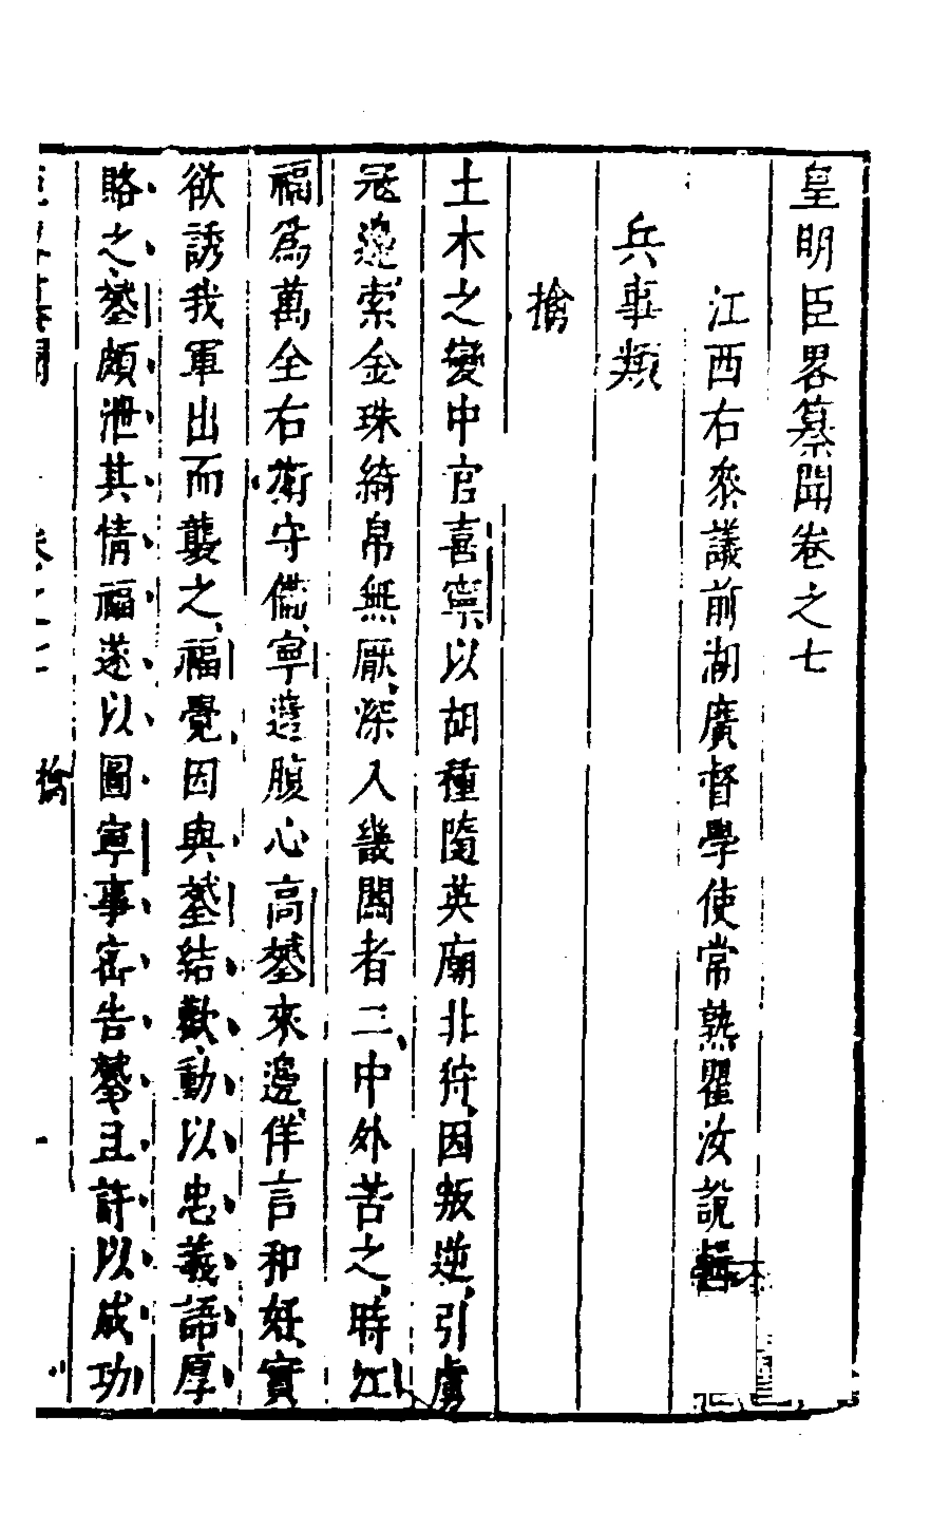 皇明臣畧纂聞卷之七
江西右叅議前湖廣督學使常熟瞿汝說輯
兵事類
擒
土木之變中官喜寧以胡種隨英廟北狩因叛逆引虜
冦邊索金珠綺帛無厭深入幾闔者二中外苦之時江
福爲萬全右衛守備寧遣腹心高鏊來邊佯言和好實
欲誘我軍出而襲之福覺因與鏊結歡動以忠義語厚
賂之鏊頗泄其情福遂以圖寧事密告鏊且許以成功
卷之七
擒
一